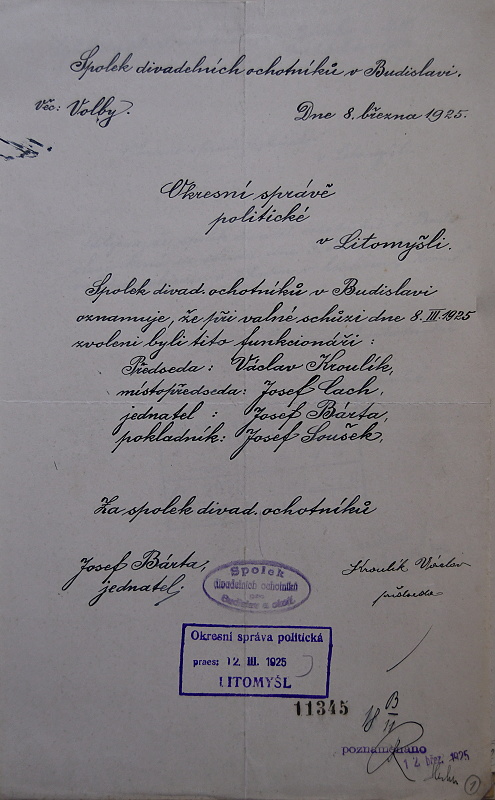 Spolek divadelních ochotníků v Budislavi.
Věc: Volby.
Dne 8. března 1925.
Okresní správě
politické
v Litomyšli.
Spolek divad. ochotníků v Budislavi
oznamuje, že při valné schůzi dne 8. III. 1925
zvoleni byli tito funkcionáři :
Předseda : Václav Kroulík,
místopředseda: Josef Cach,
jednatel : Josef Bárta,
pokladník: Josef Soušek.
Za spolek divad. ochotníků
Josef Bárta,
jednatel.
Kroulík Václav
předseda
Spolek
divadelních ochotníků
Okresní správa politická
praes: 12. III. 1925
LITOMYŠL
11345
poznamenáno
12. břez. 1925
1